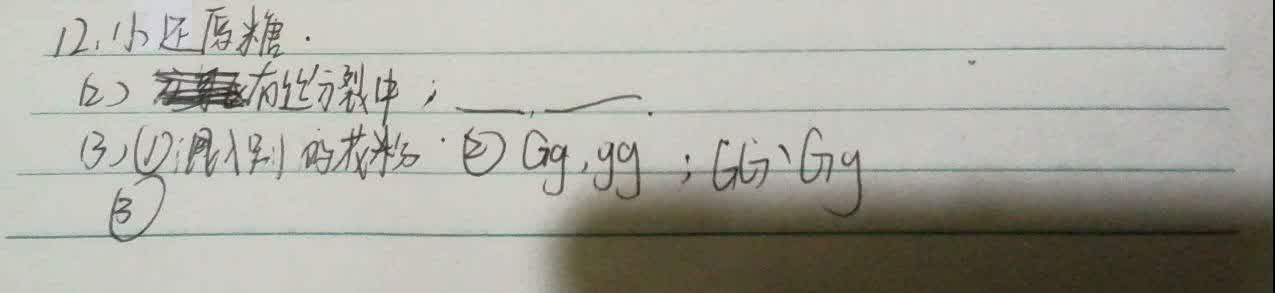 12.(1)还原糖.
(2) 有丝分裂中;
(3)(1)混入别的花粉.②Gg,gg;GG、Gg
③